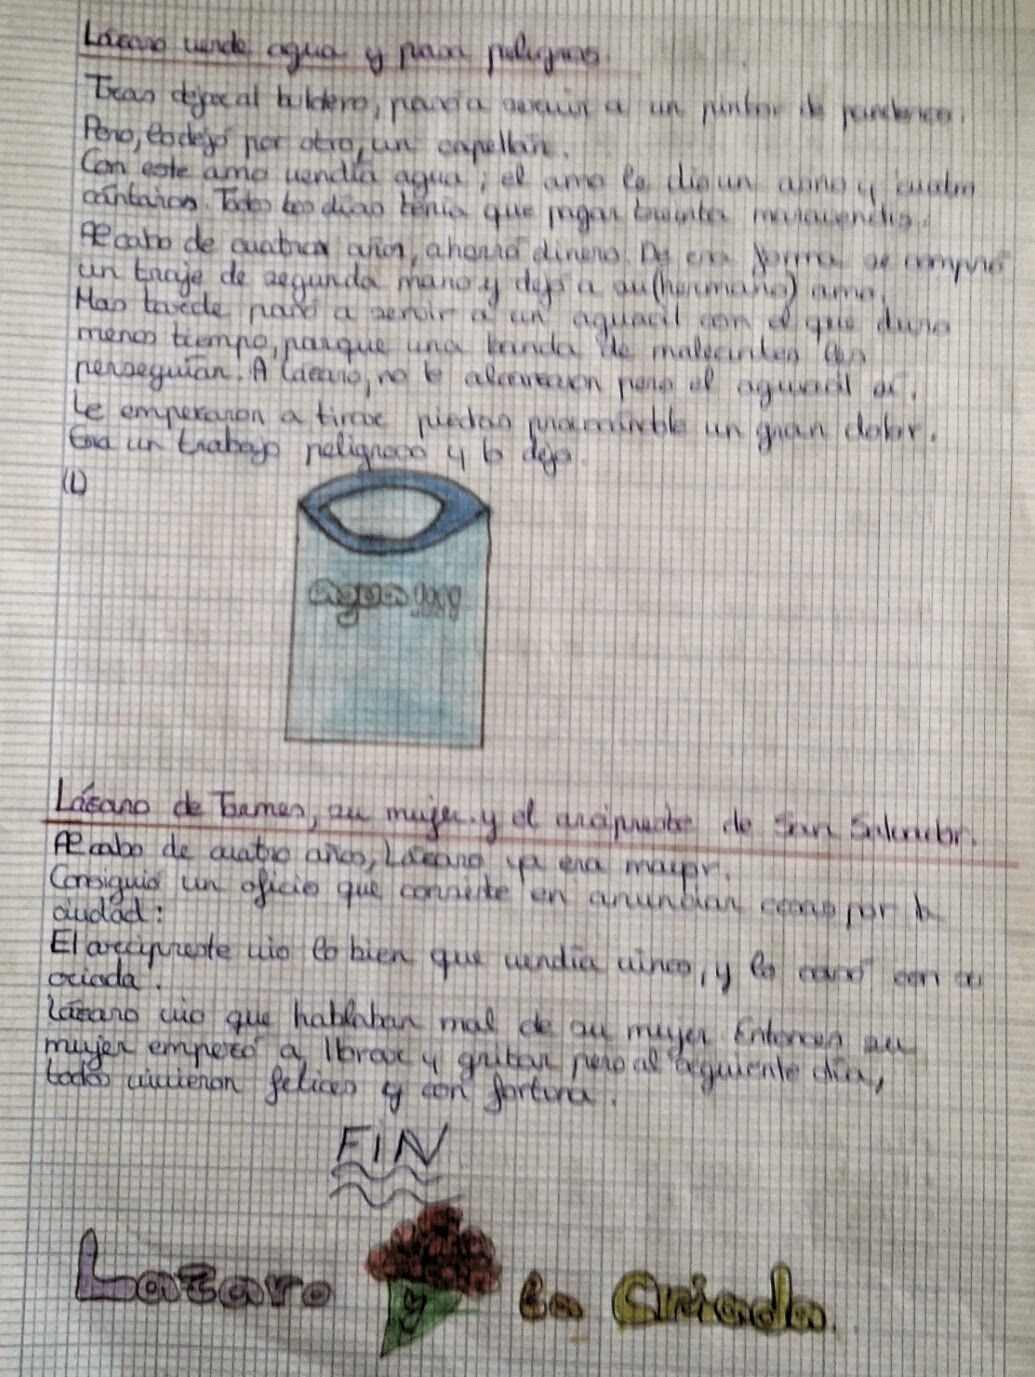 Lázaro vende agua y pasa peligros.
Tras dejar al buldero, pasó a servir a un pintor de panderos.
Pero, lo dejó por otro, un capellán.
Con este amo vendía agua; el amo le dio un asno y cuatro
cántaros. Todos los días tenía que pagar treinta maravendís.
Al cabo de cuatros años, ahorró dinero. De esa forma se compró
un traje de segunda mano y dejó a su (hermano) amo.
Mas tarde pasó a servir a un aguacil con el que duro
menos tiempo, porque una banda de maleantes les
perseguían. A Lázaro, no lo alcanzaron pero el aguacil sí.
Le empezaron a tirar piedras un gran dolor.
Era un trabajo peligroso y lo dejo.
(L)
agua !!!!
Lázaro de Tormes, su mujer y el arcipreste de San Salvador.
Al cabo de cuatro años, Lázaro ya era mayor.
Consiguió un oficio que consiste en anunciar cosas por la
ciudad:
El arcipreste vio lo bien que vendía vinos, y lo casó con su
criada.
Lázaro vio que hablaban mal de su mujer. Entonces su
mujer empezó a llorar y gritar pero al siguiente día,
todos vivieron felices y con fortuna.
FIN
Lazaro y la Criada.